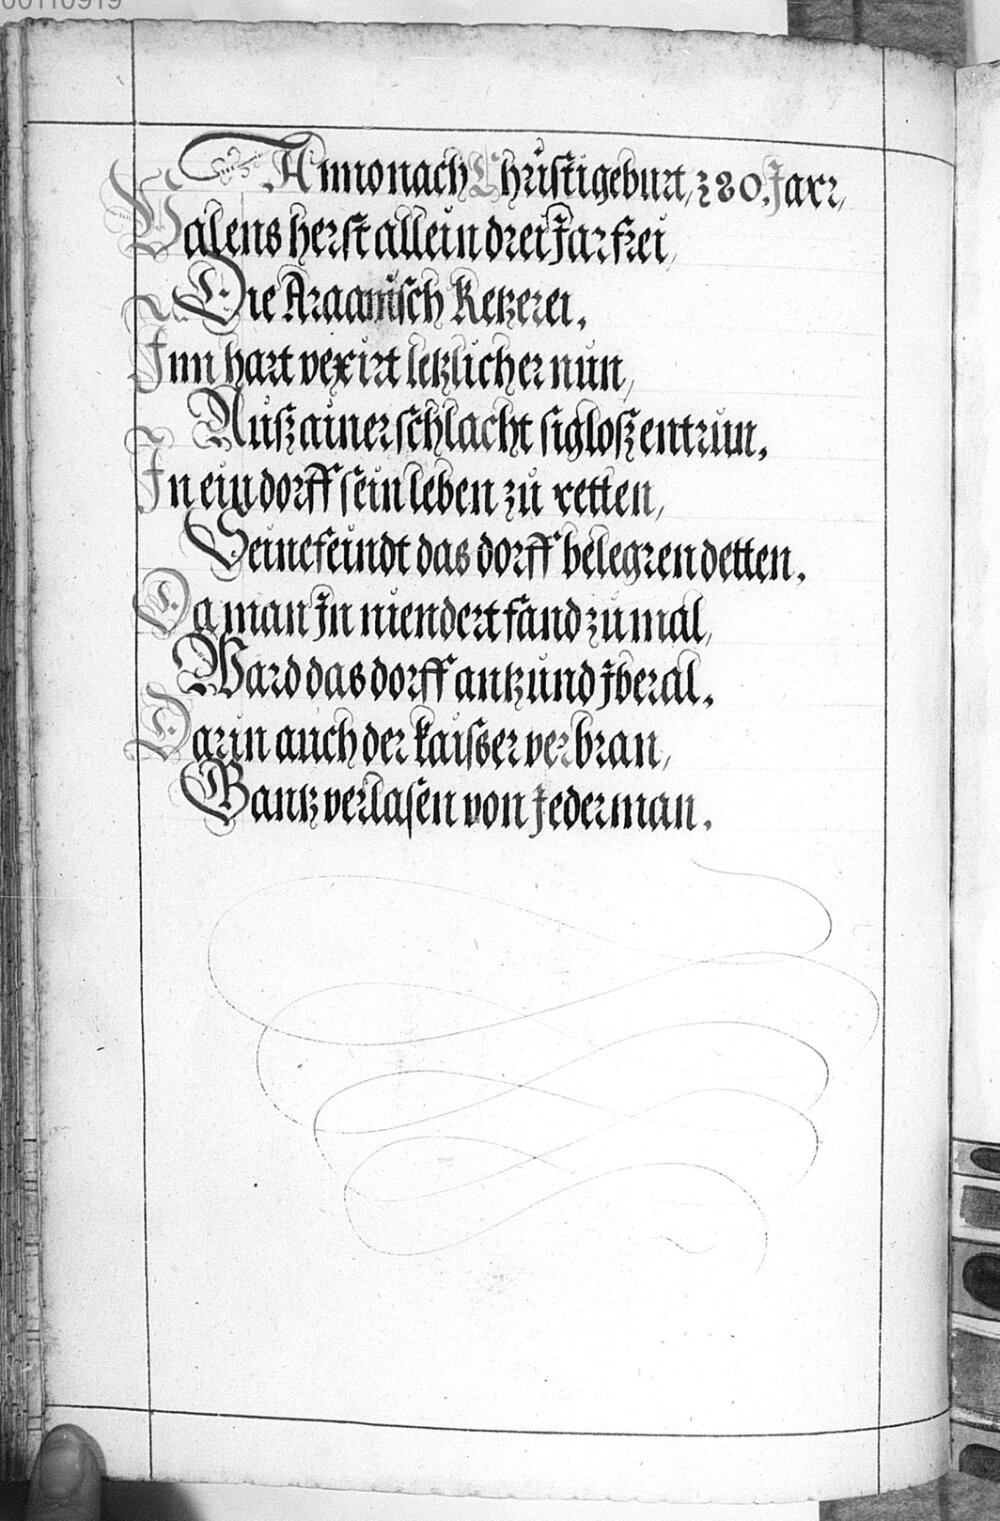 00110919
Anno nach Christi geburt, 380. Jarr,
Valens herst allein drei Jar frei,
Die Araanisch Ketzerei.
Inn hart vexirt letzlicher nun,
Auß ainer schlacht sigloß entrun.
In ein dorff sein leben zu retten,
Seine feindt das dorff belegren detten.
Da man In niendert fand zu mal,
Ward das dorff antzund Jberal.
Darin auch der kaisser verbran,
Gantz verlasen von Jederman.